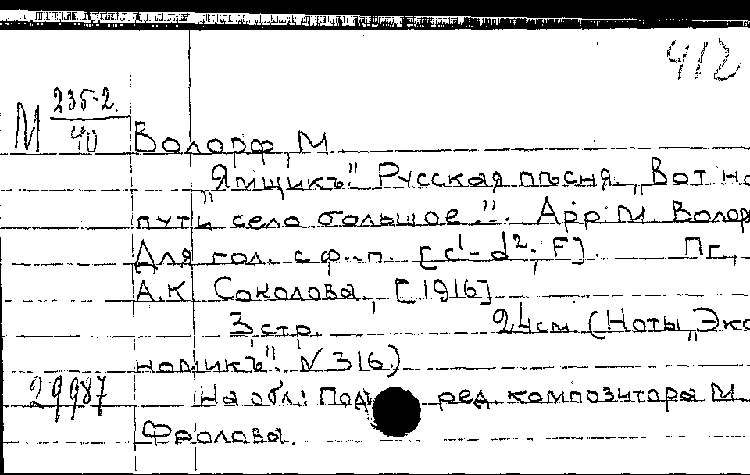 412
М 235-2. / 40
Волорф, М.
„Ямщикъ". Русская пѣсня. „Вот на
пути село большое...". Арр. М. Волор
Для гол. с ф.-п. [c¹-d²; F]. Пг.,
А.К. Соколова, [1916]
3 стр. 24 см. (Ноты „Эко
номикъ". N 316.)
29987 На обл.: Под ред. композитора М.
Фролова.